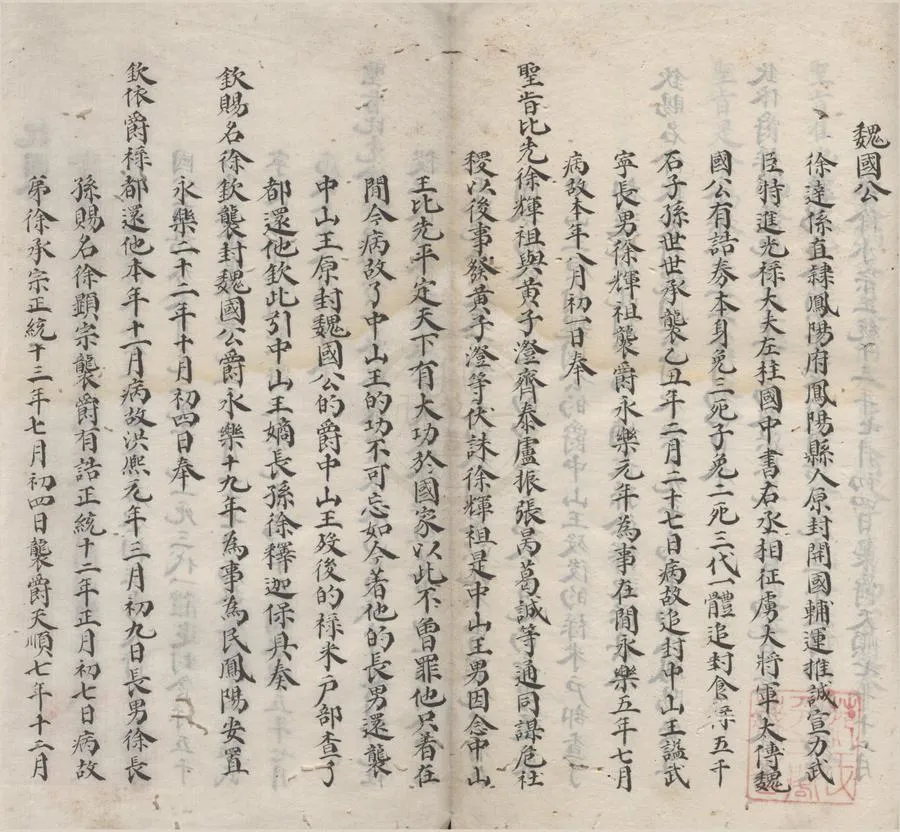 魏國公
徐達係直隸鳳陽府鳳陽縣人原封開國輔運推誠宣力武
臣特進光祿大夫左柱國中書右丞相征虜大將軍太傅魏
國公有誥券本身免三死子免二死三代一體追封食祿五千
石子孫世世承襲乙丑年二月二十七日病故追封中山王謚武
寧長男徐輝祖襲爵永樂元年為事在閒永樂五年七月
病故本年八月初一日奉
聖旨比先徐輝祖與黃子澄齊泰盧振張昺葛誠等通同謀危社
稷以後事發黃子澄等伏誅徐輝祖是中山王男因念中山
王比先平定天下有大功於國家以此不曾罪他只着在
閒今病故了中山王的功不可忘如今著他的長男還襲
中山王原封魏國公的爵中山王歿後的祿米戶部查了
都還他欽此引中山王嫡長孫徐釋迦保具奏
欽賜名徐欽襲封魏國公爵永樂十九年為事為民鳳陽安置
永樂二十二年十月初四日奉
欽依爵祿都還他本年十一月病故洪熙元年三月初九日長男徐長
孫賜名徐顯宗襲爵有誥正統十二年正月初七日病故
弟徐承宗正統十三年七月初四日襲爵天順七年十二月